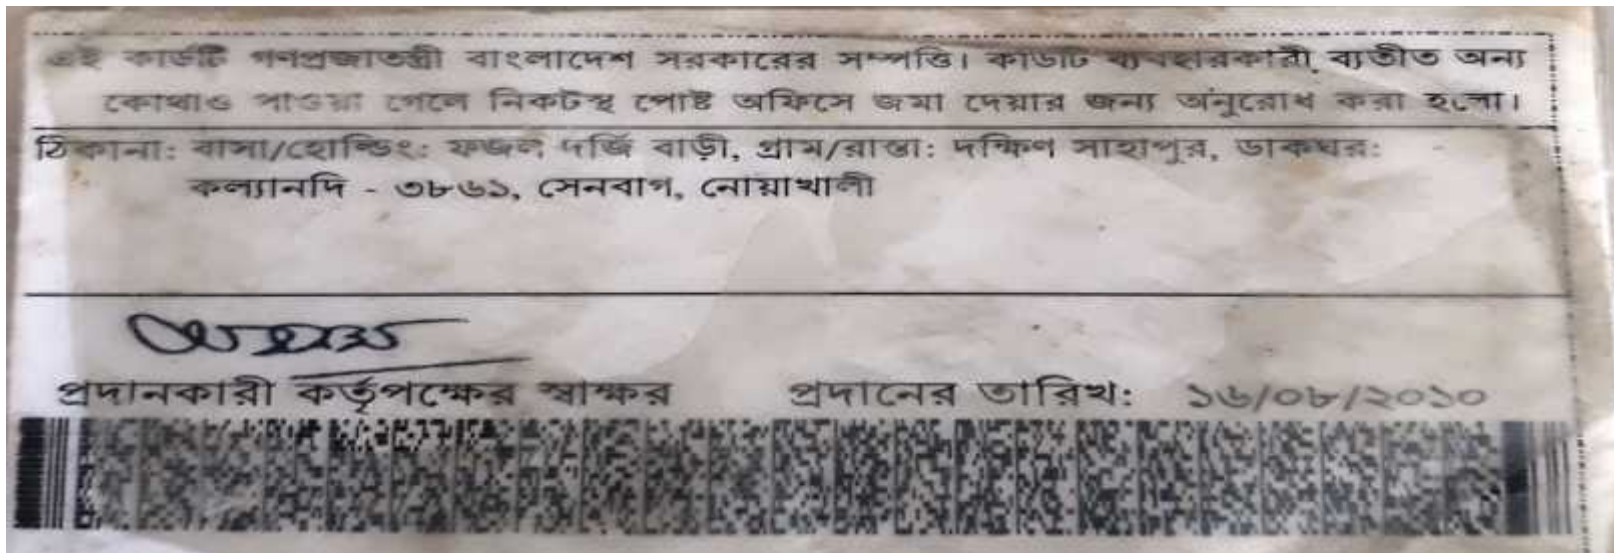 এই কার্ডটি গণপ্রজাতন্ত্রী বাংলাদেশ সরকারের সম্পত্তি। কার্ডটি ব্যবহারকারী ব্যতীত অন্য
কোথাও পাওয়া গেলে নিকটস্থ পোষ্ট অফিসে জমা দেয়ার জন্য অনুরোধ করা হলো।
ঠিকানা: বাসা/হোল্ডিং: ফজল দর্জি বাড়ী, গ্রাম/রাস্তা: দক্ষিণ সাহাপুর, ডাকঘর:
কল্যানদি - ৩৮৬১, সেনবাগ, নোয়াখালী
প্রদানকারী কর্তৃপক্ষের স্বাক্ষর প্রদানের তারিখ: ১৬/০৮/২০১০